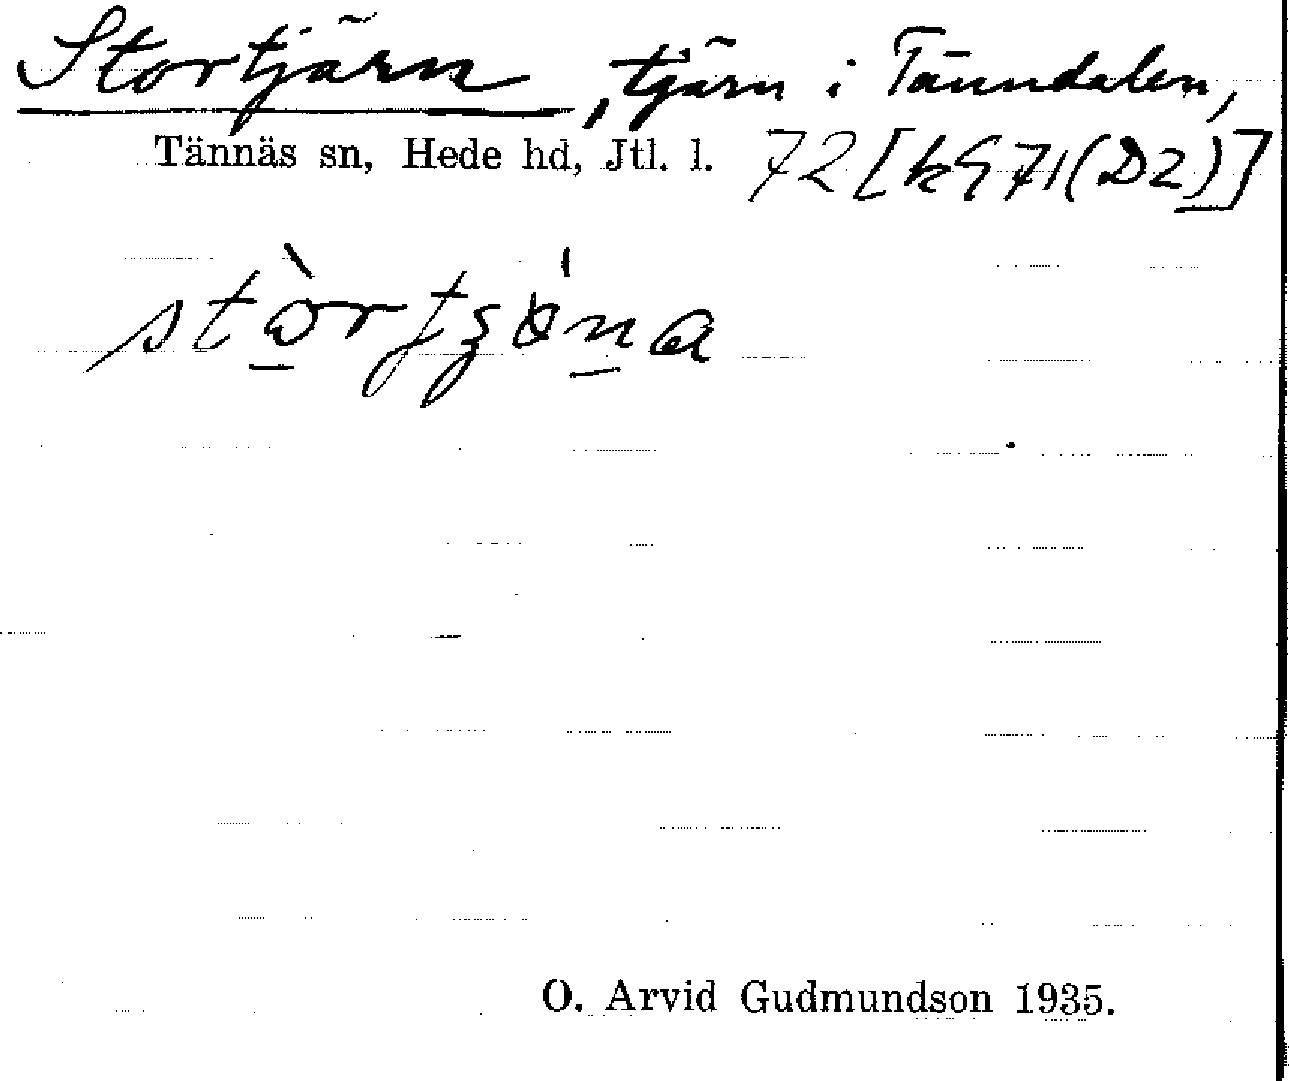 Stortjärn, tjärn i Tänndalen,
Tännäs sn, Hede hd, Jtl. l. 72 [k971(D2)]
O. Arvid Gudmundson 1935.